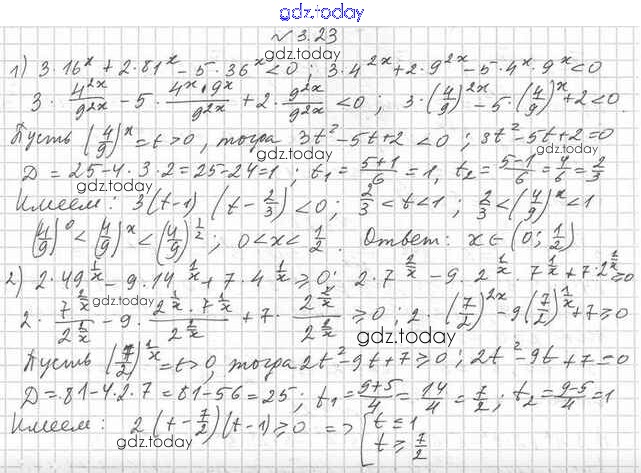 gdz.today
№ 3.23
gdz.today
1) 3·16^x + 2·81^x − 5·36^x < 0 ; 3·4^{2x} + 2·9^{2x} − 5·4^x·9^x < 0
3 · 4^{2x}/9^{2x} − 5 · 4^x·9^x/9^{2x} + 2 · 9^{2x}/9^{2x} < 0 ; 3·(4/9)^{2x} − 5·(4/9)^x + 2 < 0.
gdz.today
gdz.today
Пусть (4/9)^x = t > 0, тогда 3t² − 5t + 2 < 0 ; 3t² − 5t + 2 = 0
gdz.today
D = 25 − 4·3·2 = 25 − 24 = 1 ; t₁ = (5+1)/6 = 1, t₂ = (5−1)/6 = 4/6 = 2/3
gdz.today
Имеем: 3(t−1)(t − 2/3) < 0 ; 2/3 < t < 1 ; 2/3 < (4/9)^x < 1
gdz.today
(4/9)^0 < (4/9)^x < (4/9)^{1/2} ; 0 < x < 1/2 . Ответ: x ∈ (0; 1/2)
gdz.today
2) 2·49^{1/x} − 9·14^{1/x} + 7·4^{1/x} ≥ 0; 2·7^{2/x} − 9·2^{1/x}·7^{1/x} + 7·2^{2/x} ≥ 0
gdz.today
2 · 7^{2/x}/2^{2/x} − 9 · 2^{1/x}·7^{1/x}/2^{2/x} + 7 · 2^{2/x}/2^{2/x} ≥ 0 ; 2·(7/2)^{2x} − 9(7/2)^{1/x} + 7 ≥ 0
gdz.today
Пусть (7/2)^{1/x} = t > 0, тогда 2t² − 9t + 7 ≥ 0 ; 2t² − 9t + 7 = 0
gdz.today
D = 81 − 4·2·7 = 81 − 56 = 25 ; t₁ = (9+5)/4 = 14/4 = 7/2 ; t₂ = (9−5)/4 = 1
gdz.today
Имеем: 2(t − 7/2)(t − 1) ≥ 0 => { t ≤ 1
t ≥ 7/2
gdz.today